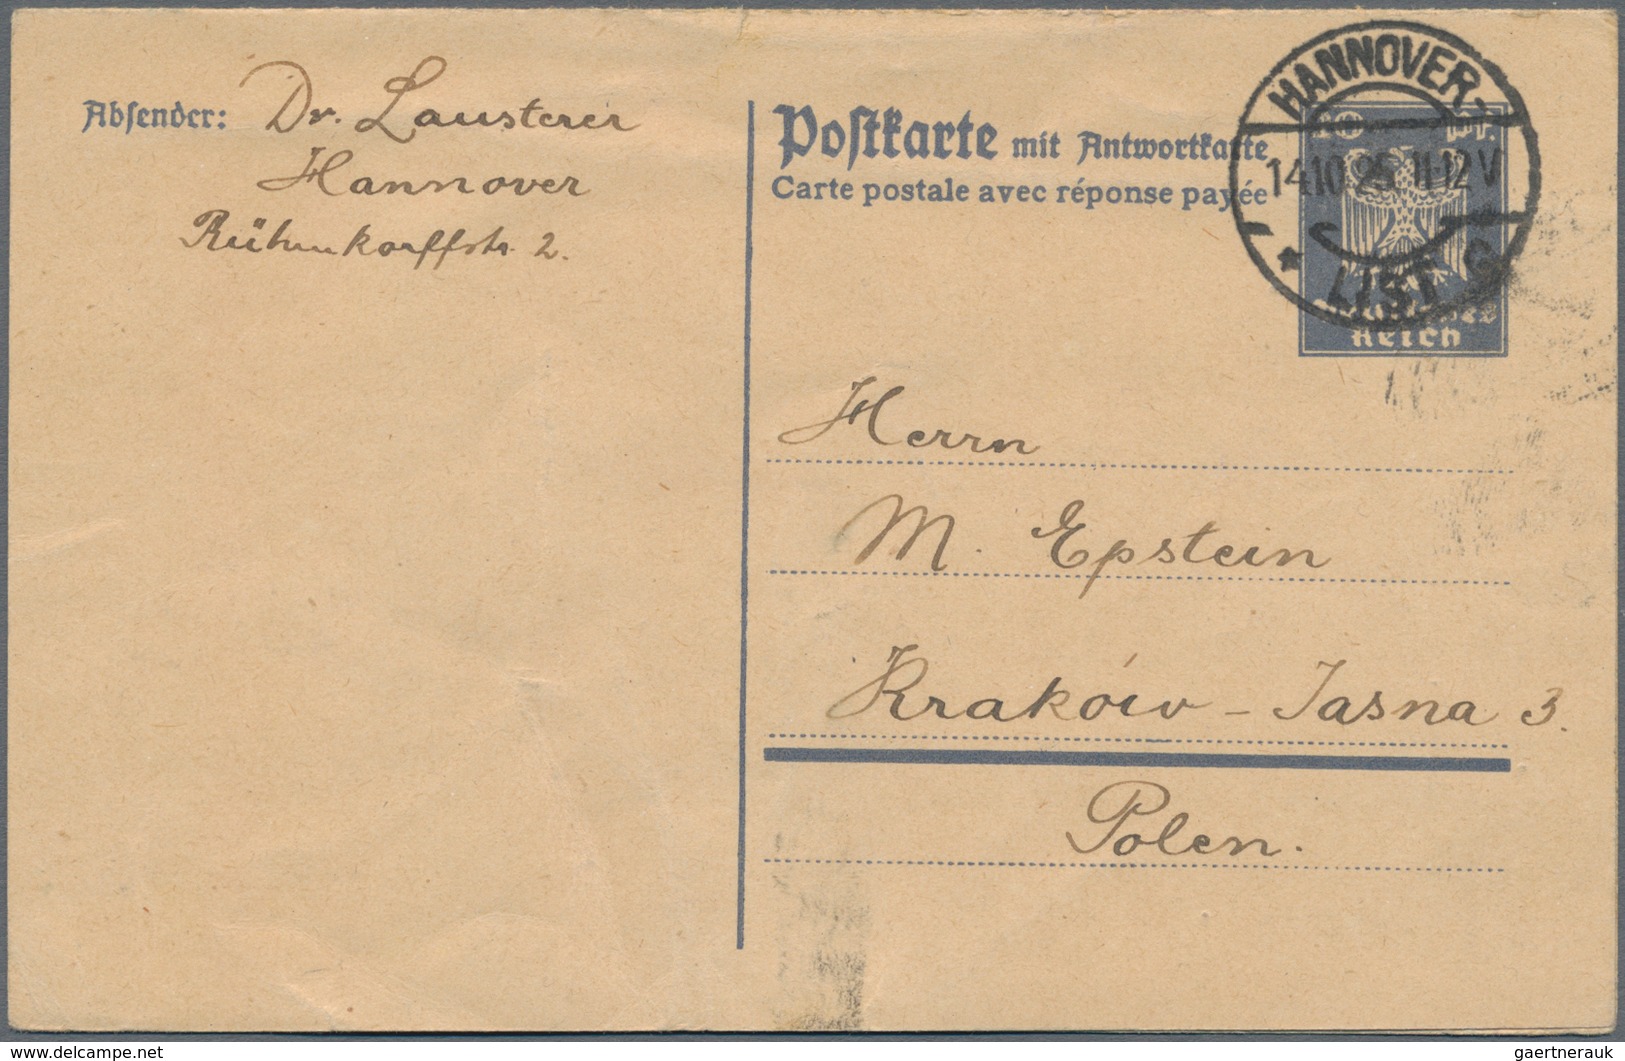 Absender: Dr. Lausterer
Hannover
Rühmkorffstr. 2.
Postkarte mit Antwortkarte
Carte postale avec réponse payée
HANNOVER-
14.10.25. 11-12 V
* LIST
Pf.
Deutsches
Reich
Herrn
M. Epstein
Kraków - Jasna 3.
Polen.
delcampe.net
gaertnerauk